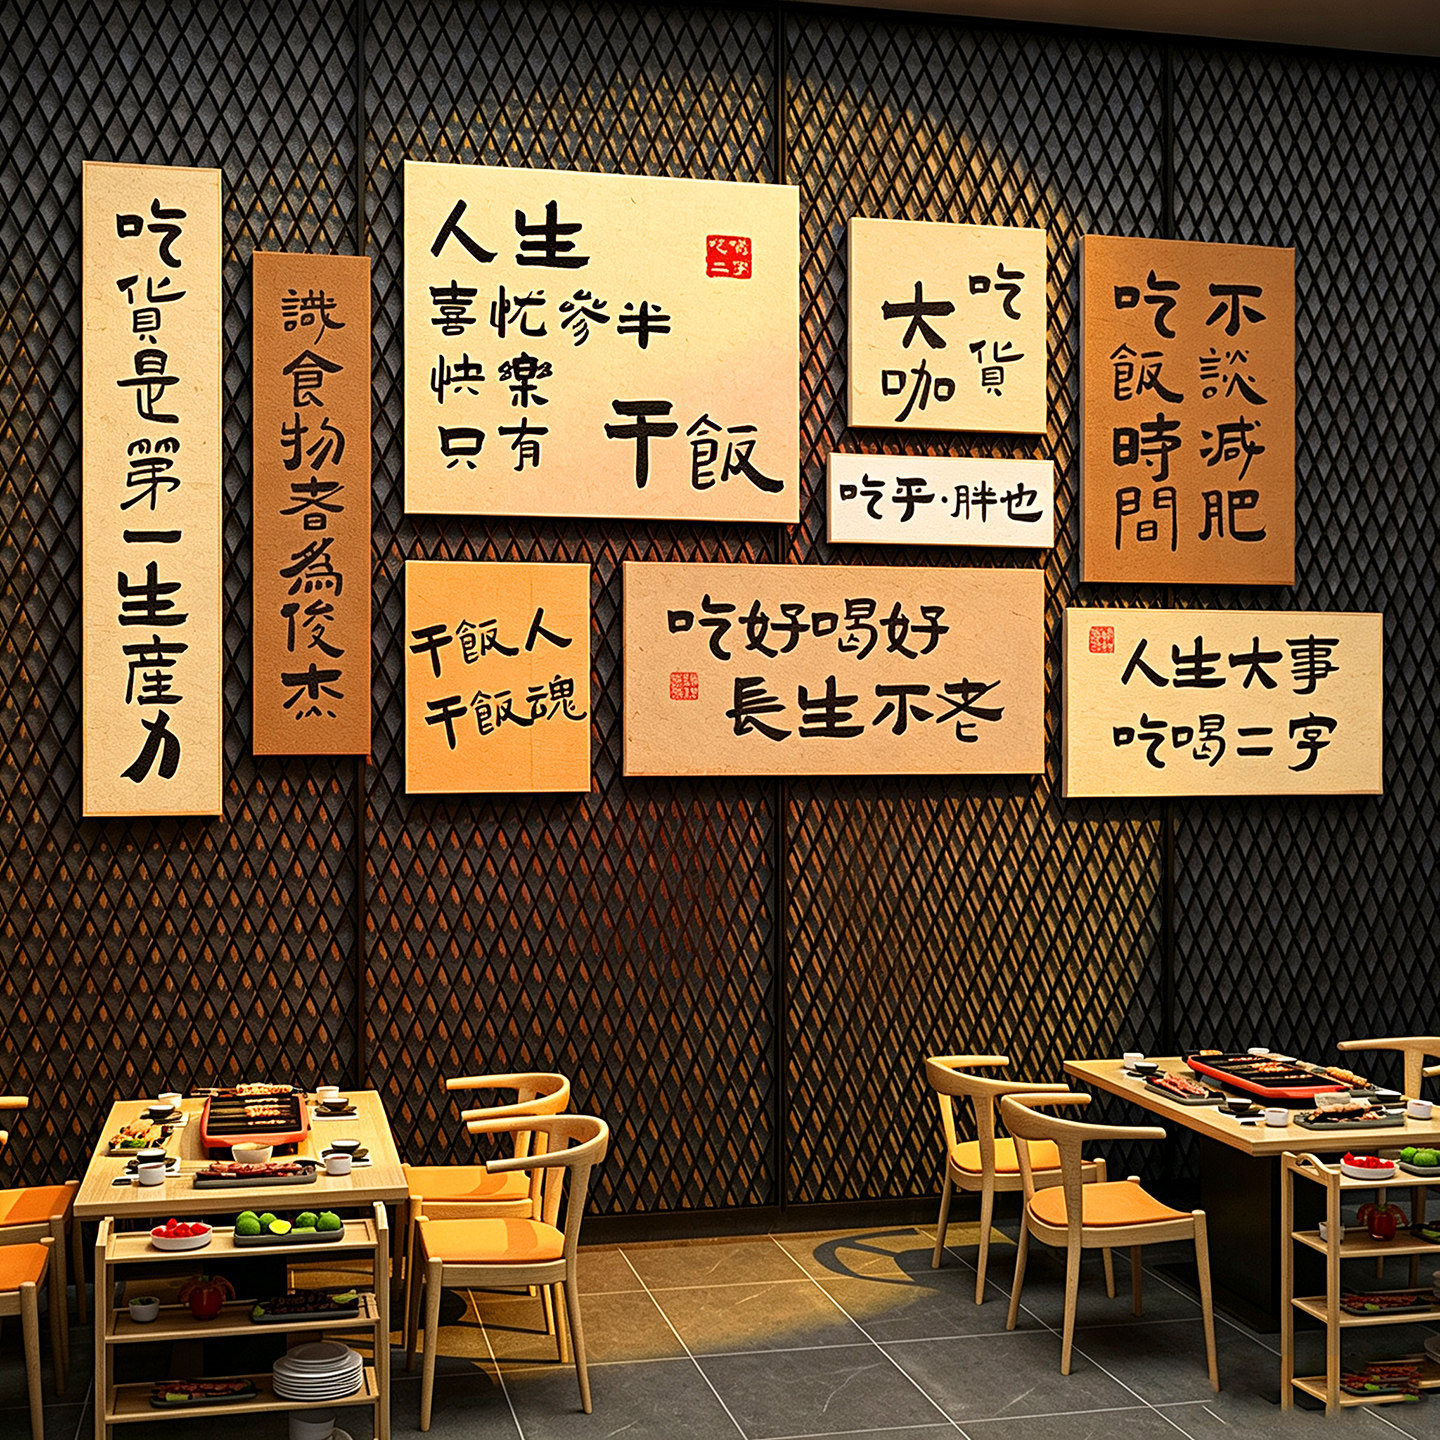 吃貨是第一生産力
識食物者為俊杰
人生
喜忧參半
快樂
只有
干飯
吃喝
二字
吃貨
大咖
吃乎·胖也
不談減肥
吃飯時間
干飯人
干飯魂
吃好喝好
長生不老
人生大事
吃喝二字